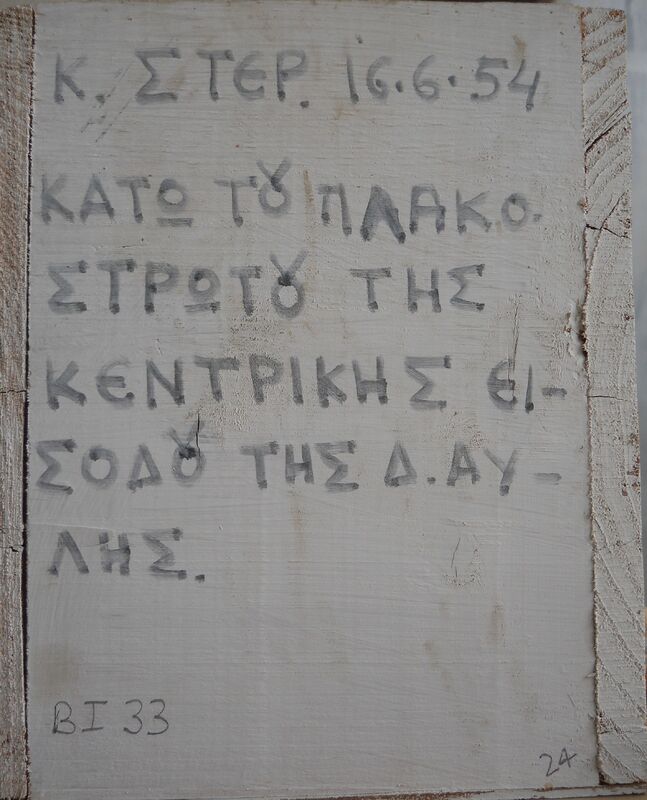 Κ. ΣΤΕΡ. 16.6.54
ΚΑΤΩ ΤȢ ΠΛΑΚΟ-
ΣΤΡΩΤȢ ΤΗΣ
ΚΕΝΤΡΙΚΗΣ ΕΙ-
ΣΟΔȢ ΤΗΣ Δ. ΑΥ-
ΛΗΣ.
BI 33
24